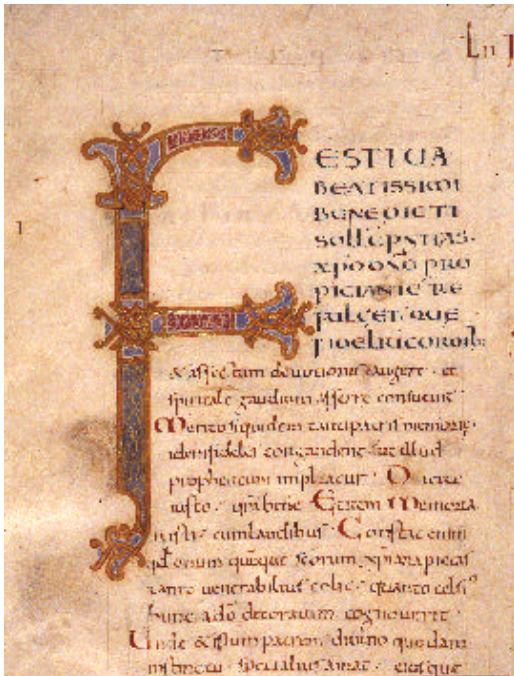 LII
FESTIUA
BEATISSIMI
BENEDICTI
SOLLEPNITAS
XPO DNO PRO
PICIANTE RE
FULGET QUE
FIDELIU CORDIB;
& affectum deuotionis augere et
spiritale gaudium afferre consueuit
Merito siquidem tanti patris memoria
fideles congaudent illud
propheticum impleatur
iusto Et item Memoria
iusti cum laudibus Constat enim
qd unum quemque scorum xpiana pietas
tanto uenerabilius colit quanto celsi
hunc a do decoratum cognouerit
Unde & istum patrem diuino quodam
instinctu specialius amat eiusque